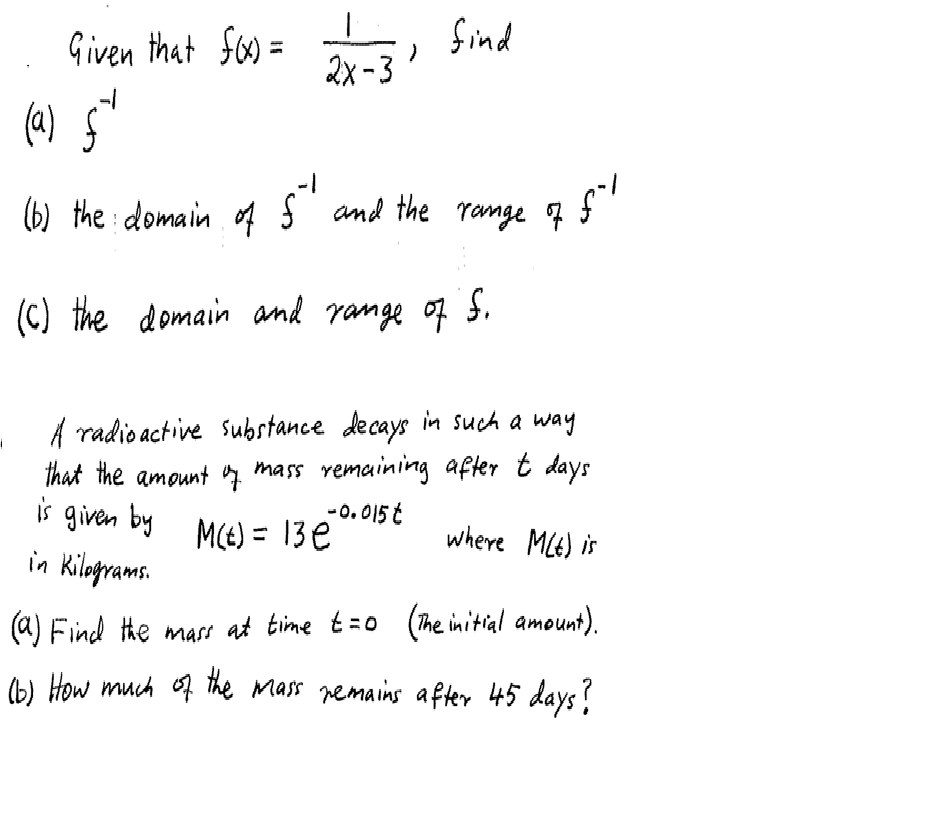 Given that f(x) = 1/(2x-3), find
(a) f⁻¹
(b) the domain of f⁻¹ and the range of f⁻¹
(C) the domain and range of f.
A radioactive substance decays in such a way
that the amount of mass remaining after t days
is given by M(t) = 13e^(-0.015t) where M(t) is
in kilograms.
(a) Find the mass at time t=0 (The initial amount).
(b) How much of the mass remains after 45 days?